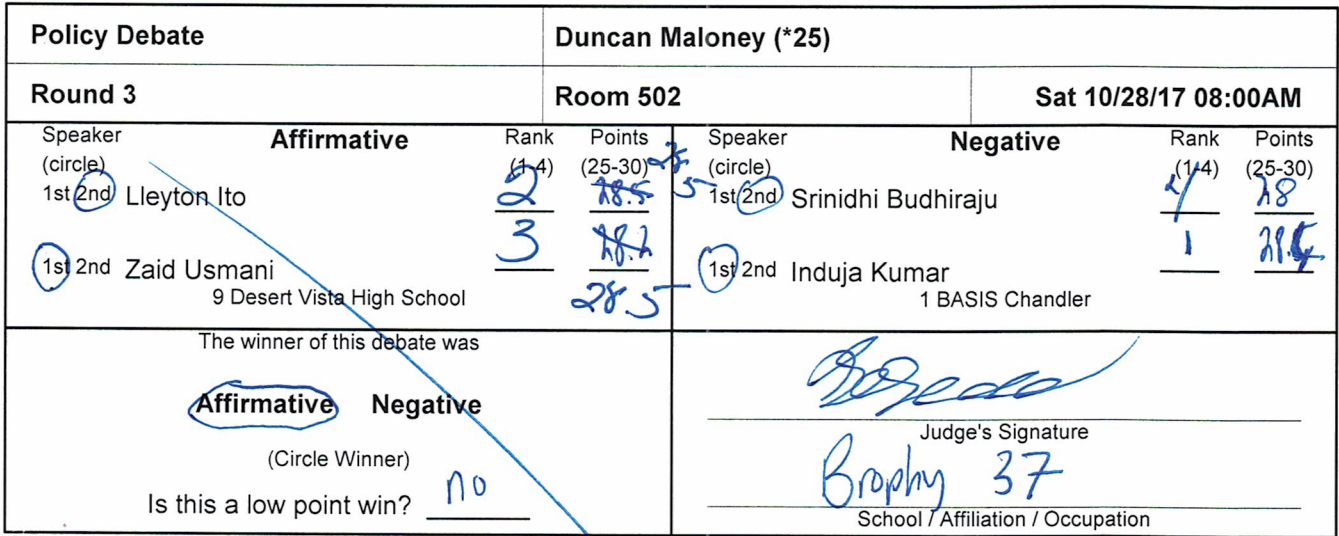 Policy Debate Duncan Maloney (*25)
Round 3 Room 502 Sat 10/28/17 08:00AM
Speaker Affirmative Rank Points
(circle) (1-4) (25-30)
1st 2nd Lleyton Ito 2 28.5
1st 2nd Zaid Usmani 3 28.2
9 Desert Vista High School 28.5
Speaker Negative Rank Points
(circle) (1-4) (25-30)
1st 2nd Srinidhi Budhiraju 28
1st 2nd Induja Kumar 1
1 BASIS Chandler
The winner of this debate was
Affirmative Negative
(Circle Winner)
Is this a low point win? no
Judge's Signature
Brophy 37
School / Affiliation / Occupation